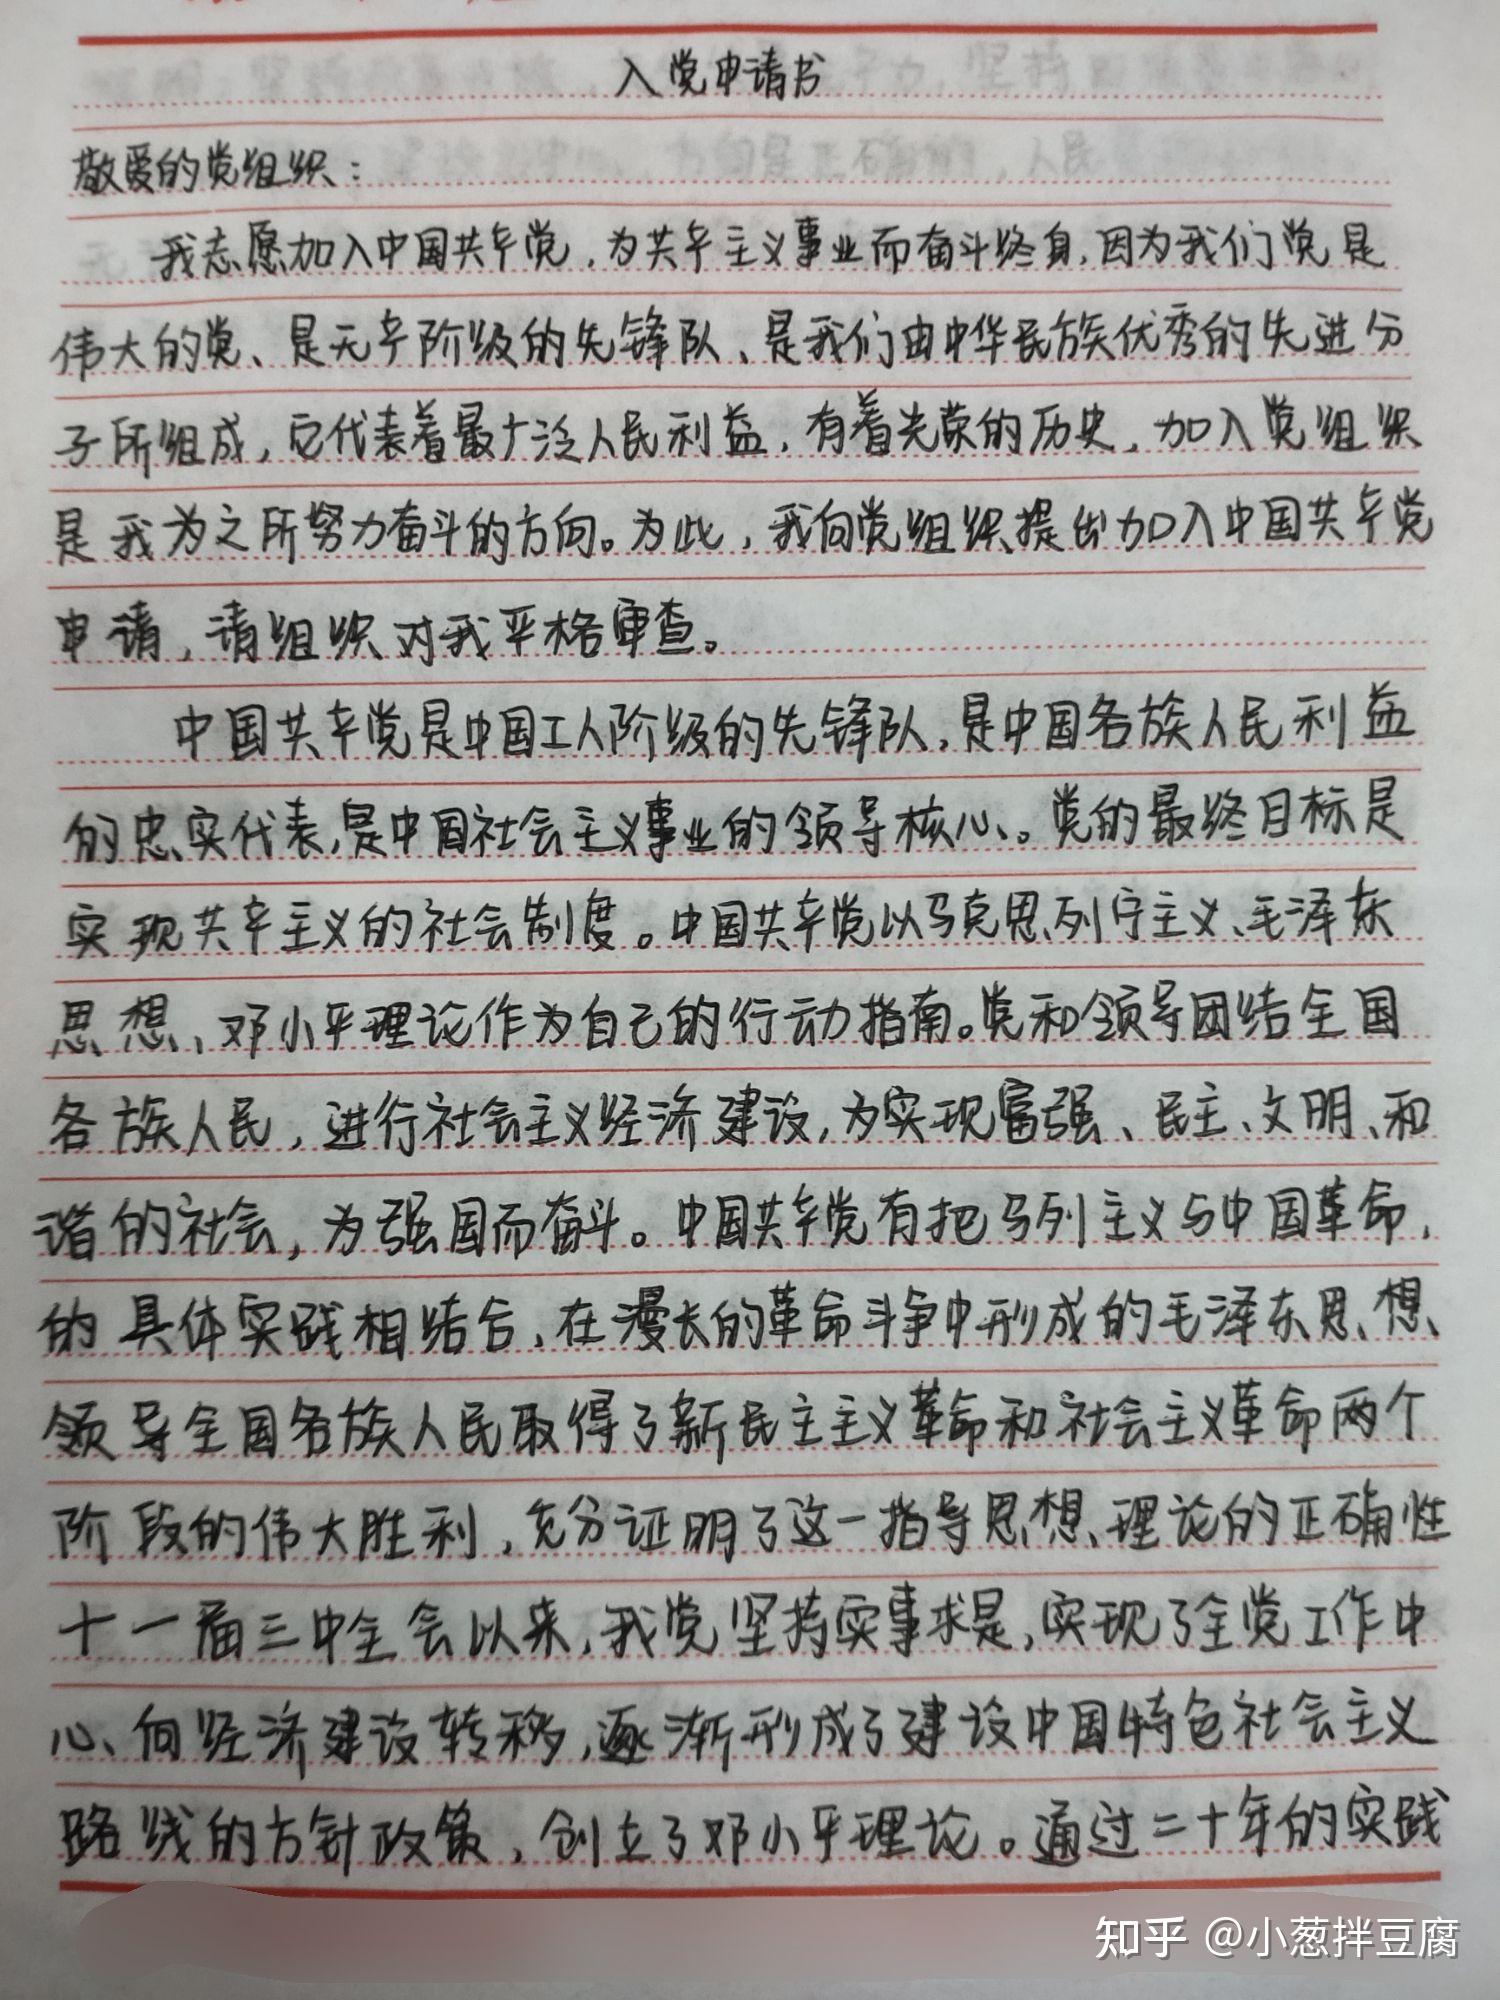 入党申请书
敬爱的党组织:
我志愿加入中国共产党,为共产主义事业而奋斗终身,因为我们党是
伟大的党、是无产阶级的先锋队、是我们由中华民族优秀的先进分
子所组成,它代表着最广泛人民利益,有着光荣的历史,加入党组织
是我为之所努力奋斗的方向。为此,我向党组织提出加入中国共产党
申请,请组织对我严格审查。
中国共产党是中国工人阶级的先锋队,是中国各族人民利益
的忠实代表,是中国社会主义事业的领导核心。党的最终目标是
实现共产主义的社会制度。中国共产党以马克思列宁主义、毛泽东
思想、邓小平理论作为自己的行动指南。党和领导团结全国
各族人民,进行社会主义经济建设,为实现富强、民主、文明、和
谐的社会,为强国而奋斗。中国共产党有把马列主义与中国革命,
的具体实践相结合,在漫长的革命斗争中形成的毛泽东思想、
领导全国各族人民取得了新民主主义革命和社会主义革命两个
阶段的伟大胜利,充分证明了这一指导思想、理论的正确性
十一届三中全会以来,我党坚持实事求是,实现了全党工作中
心、向经济建设转移,逐渐形成了建设中国特色社会主义
路线的方针政策,创立了邓小平理论。通过二十年的实践
知乎 @小葱拌豆腐